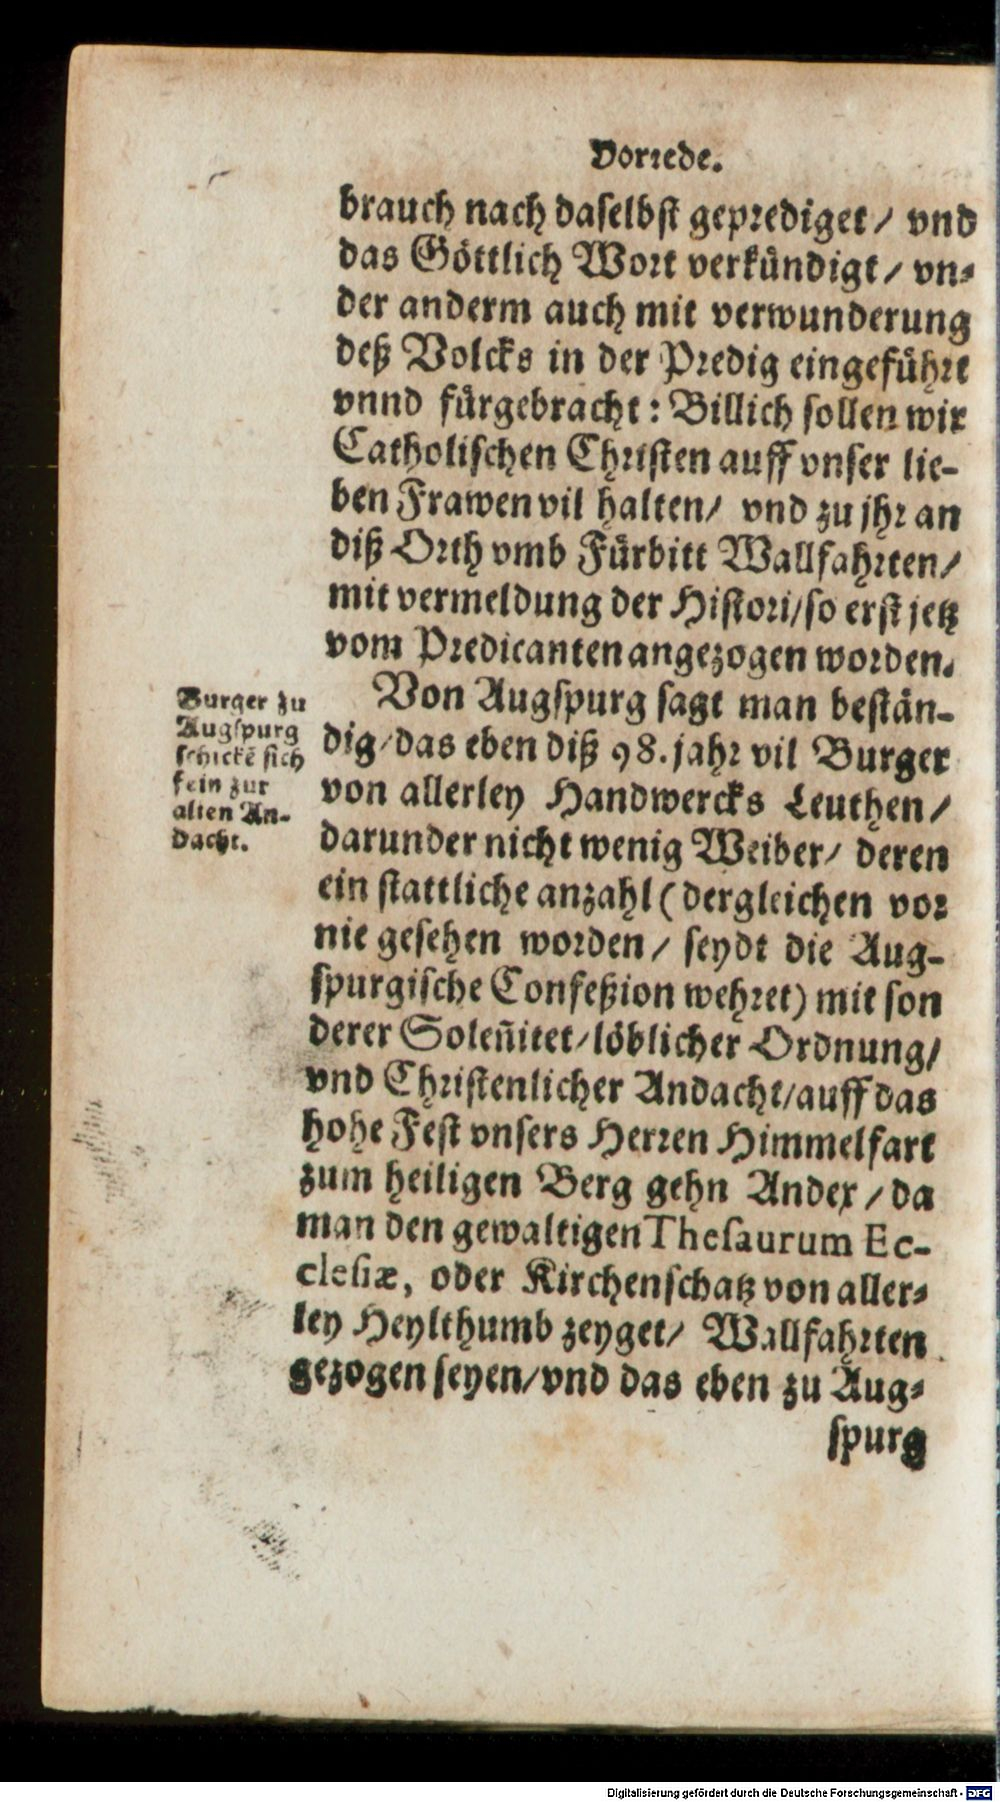 Vorrede.
brauch nach daselbst geprediget / vnd
das Göttlich Wort verkündigt / vn⸗
der anderm auch mit verwunderung
deß Volcks in der Predig eingeführt
vnnd fürgebracht: Billich sollen wir
Catholischen Christen auff vnser lie-
ben Frawen vil halten / vnd zu jhr an
diß Orth vmb Fürbitt Wallfahrten /
mit vermeldung der Histori / so erst jetz
vom Predicanten angezogen worden.
Burger zu
Augspurg
schickē sich
fein zur
alten An-
dacht.
Von Augspurg sagt man bestän-
dig / das eben diß 98. jahr vil Burger
von allerley Handwercks Leuthen /
darunder nicht wenig Weiber / deren
ein stattliche anzahl (dergleichen vor
nie gesehen worden / seydt die Aug-
spurgische Confeßion wehret) mit son
derer Soleñitet / löblicher Ordnung /
vnd Christenlicher Andacht / auff das
hohe Fest vnsers Herren Himmelfart
zum heiligen Berg gehn Andex / da
man den gewaltigen Thesaurum Ec-
clesiæ, oder Kirchenschatz von aller⸗
ley Heylthumb zeyget / Wallfahrten
gezogen seyen / vnd das eben zu Aug⸗
spurg
Digitalisierung gefördert durch die Deutsche Forschungsgemeinschaft - DFG